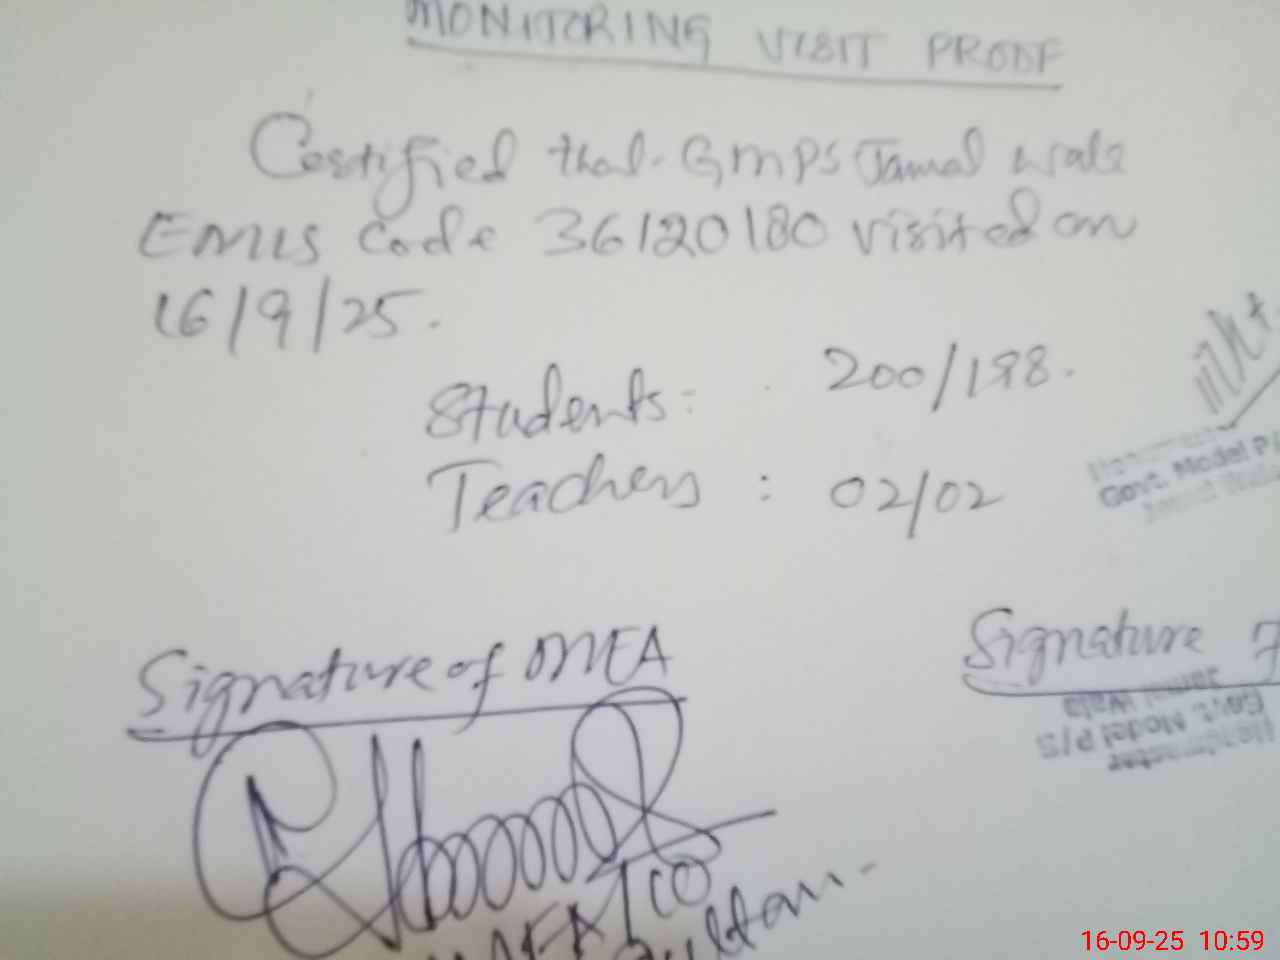 MONITORING VISIT PROOF
Certified that GMPS Jamal Wala
EMIS Code 36120180 visited on
16/9/25.
Students: 200/198.
Teachers : 02/02
Govt. Model P/
Signature of MEA
Signature
Wala
Govt. Model P/S
Headmaster
Multan.
16-09-25 10:59